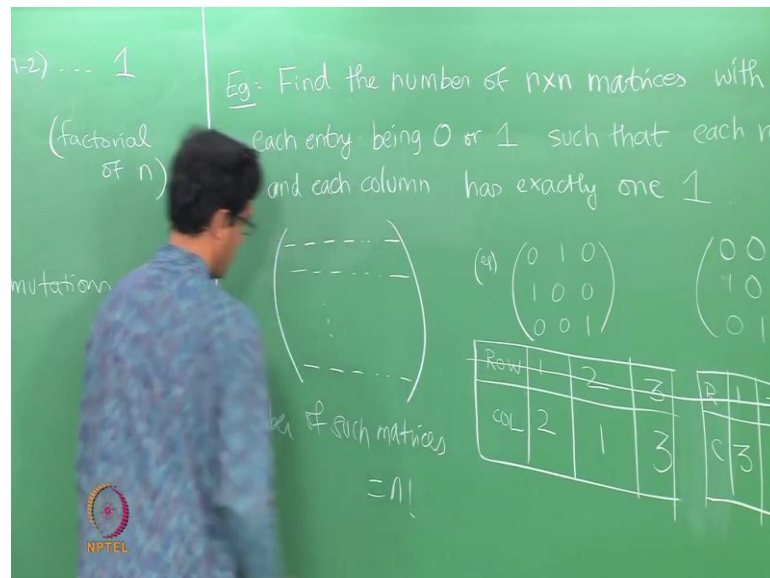 n-2) ... 1
(factorial
of n)
mutation
Eg: Find the number of n×n matrices with
each entry being 0 or 1 such that each
and each column has exactly one 1
(eg)
0 1 0
1 0 0
0 0 1
0 0
1 0
0 1
ROW 1 2 3
COL 2 1 3
R 1
C 3
of such matrices
= n!
NPTEL